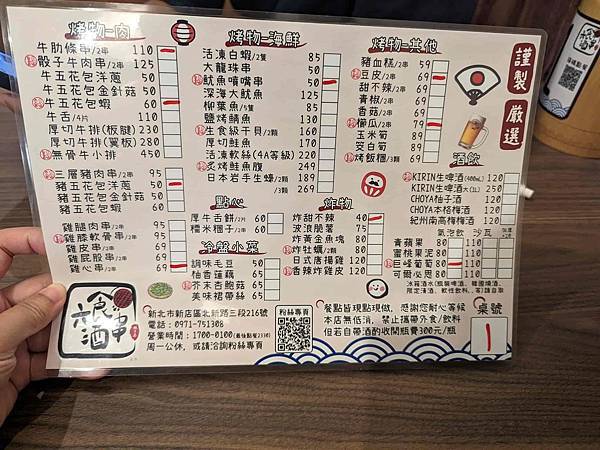 烤物-肉
牛肋條串/2串 110
骰子牛肉串/2串 125
牛五花包洋蔥 50
牛五花包金針菇 50
牛五花包蝦 60
牛舌/4片 110
厚切牛排(板腱) 230
厚切牛排(翼板) 280
無骨牛小排 450
三層豬肉串/2串 95
豬五花包洋蔥 50
豬五花包金針菇 50
豬五花包蝦 60
雞腿肉串/2串 95
雞膝軟骨串/2串 95
雞皮串/2串 60
雞屁股串/2串 60
雞心串/2串 60
烤物-海鮮
活凍白蝦/2隻 85
大龍珠串 50
魷魚噴嘴串 50
深海大魷魚 125
柳葉魚/5隻 85
鹽烤鯖魚 120
生食級干貝/2顆 169
厚切鮭魚 150
活凍軟絲(4A等級) 220
炙烤鮭魚腹 249
日本岩手生蠔/2顆 189
/3顆 269
點心
厚牛舌餅/2片 60
糯米糰子/2串 60
冷盤小菜
調味毛豆 50
柚香蓮藕 65
芥末杏鮑菇 65
美味裙帶絲 65
烤物-其他
豬血糕/2串 59
豆皮/2串 69
甜不辣/2串 59
青椒/2串 69
香菇/2串 69
櫛瓜/2串 79
玉米筍 69
茭白筍 69
烤飯糰/3顆 69
炸物
炸甜不辣 40
波浪脆薯 75
炸黃金魚塊 80
炸牡蠣/5顆 80
日式唐揚雞 120
香辣炸雞皮 120
謹製
嚴選
酒飲
KIRIN生啤酒(400mL) 120
KIRIN生啤酒大(1L) 250
CHOYA柚子酒 120
CHOYA本格梅酒 120
紀州南高梅酒 120
氣泡飲 沙瓦
青蘋果 80 110 120
蜜桃果泥 80 110 120
巨峰葡萄 80 110 120
可爾必思 80 110 120
新北市新店區北新路三段216號
電話：0971-751308
營業時間：1700-0100(最後點餐2330)
周一公休，或請洽詢粉絲專頁
粉絲專頁
餐點皆現點現做，感謝您耐心等候
本店無低消，禁止攜帶外食/飲料
但若自帶酒酌收開瓶費300元/瓶
桌號
1